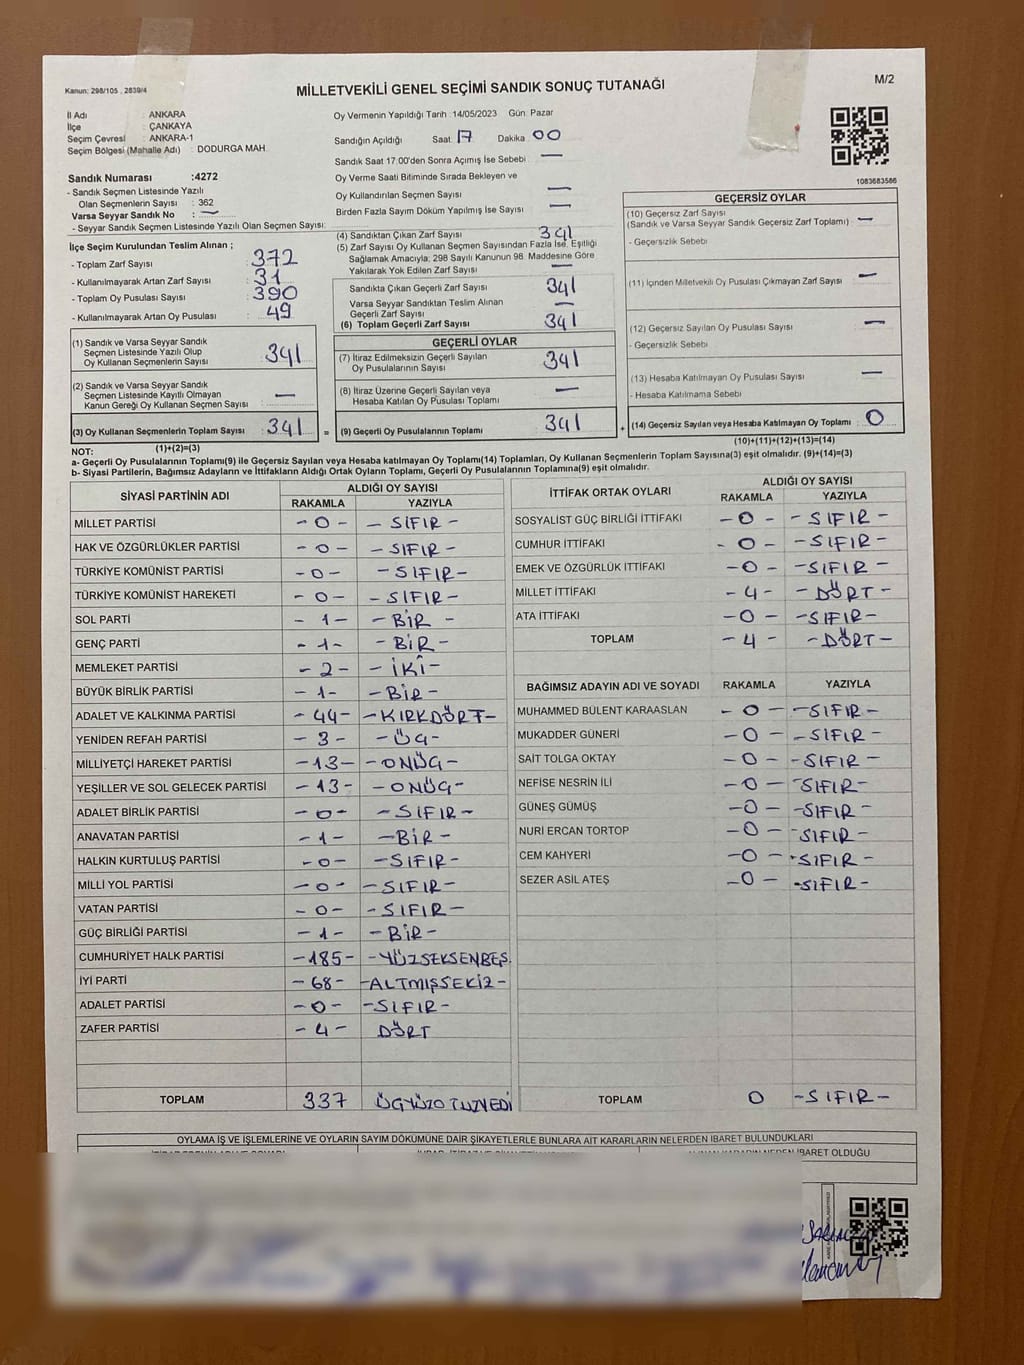 Kanun: 298/105 , 2839/4
MİLLETVEKİLİ GENEL SEÇİMİ SANDIK SONUÇ TUTANAĞI
M/2
İl Adı : ANKARA
İlçe : ÇANKAYA
Seçim Çevresi : ANKARA-1
Seçim Bölgesi (Mahalle Adı) : DODURGA MAH.
Oy Vermenin Yapıldığı Tarih :14/05/2023 Gün: Pazar
Sandığın Açıldığı Saat 17 Dakika 00
Sandık Saat 17.00'den Sonra Açımış İse Sebebi —
Oy Verme Saati Bitiminde Sırada Bekleyen ve
Oy Kullandırılan Seçmen Sayısı —
Birden Fazla Sayım Döküm Yapılmış İse Sayısı —
1083683586
Sandık Numarası :4272
- Sandık Seçmen Listesinde Yazılı
Olan Seçmenlerin Sayısı : 362
Varsa Seyyar Sandık No : —
- Seyyar Sandık Seçmen Listesinde Yazılı Olan Seçmen Sayısı:
İlçe Seçim Kurulundan Teslim Alınan ;
- Toplam Zarf Sayısı : 372
- Kullanılmayarak Artan Zarf Sayısı : 31
- Toplam Oy Pusulası Sayısı : 390
- Kullanılmayarak Artan Oy Pusulası : 49
(1) Sandık ve Varsa Seyyar Sandık
Seçmen Listesinde Yazılı Olup
Oy Kullanan Seçmenlerin Sayısı : 341
(2) Sandık ve Varsa Seyyar Sandık
Seçmen Listesinde Kayıtlı Olmayan
Kanun Gereği Oy Kullanan Seçmen Sayısı : —
(3) Oy Kullanan Seçmenlerin Toplam Sayısı : 341
(1)+(2)=(3)
(4) Sandıktan Çıkan Zarf Sayısı 341
(5) Zarf Sayısı Oy Kullanan Seçmen Sayısından Fazla İse, Eşitliği
Sağlamak Amacıyla; 298 Sayılı Kanunun 98. Maddesine Göre
Yakılarak Yok Edilen Zarf Sayısı —
Sandıkta Çıkan Geçerli Zarf Sayısı 341
Varsa Seyyar Sandıktan Teslim Alınan
Geçerli Zarf Sayısı —
(6) Toplam Geçerli Zarf Sayısı 341
GEÇERLİ OYLAR
(7) İtiraz Edilmeksizin Geçerli Sayılan
Oy Pusulalarının Sayısı 341
(8) İtiraz Üzerine Geçerli Sayılan veya
Hesaba Katılan Oy Pusulası Toplamı —
= (9) Geçerli Oy Pusulalarının Toplamı 341
GEÇERSİZ OYLAR
(10) Geçersiz Zarf Sayısı
(Sandık ve Varsa Seyyar Sandık Geçersiz Zarf Toplamı) —
- Geçersizlik Sebebi
(11) İçinden Milletvekili Oy Pusulası Çıkmayan Zarf Sayısı —
(12) Geçersiz Sayılan Oy Pusulası Sayısı —
- Geçersizlik Sebebi
(13) Hesaba Katılmayan Oy Pusulası Sayısı —
- Hesaba Katılmama Sebebi
+ (14) Geçersiz Sayılan veya Hesaba Katılmayan Oy Toplamı 0
(10)+(11)+(12)+(13)=(14)
NOT:
a- Geçerli Oy Pusulalarının Toplamı(9) ile Geçersiz Sayılan veya Hesaba katılmayan Oy Toplamı(14) Toplamları, Oy Kullanan Seçmenlerin Toplam Sayısına(3) eşit olmalıdır. (9)+(14)=(3)
b- Siyasi Partilerin, Bağımsız Adayların ve İttifakların Aldığı Ortak Oyların Toplamı, Geçerli Oy Pusulalarının Toplamına(9) eşit olmalıdır.
SİYASİ PARTİNİN ADI ALDIĞI OY SAYISI
RAKAMLA YAZIYLA
MİLLET PARTİSİ - 0 - - SIFIR -
HAK VE ÖZGÜRLÜKLER PARTİSİ - 0 - - SIFIR -
TÜRKİYE KOMÜNİST PARTİSİ - 0 - - SIFIR -
TÜRKİYE KOMÜNİST HAREKETİ - 0 - - SIFIR -
SOL PARTİ - 1 - - BİR -
GENÇ PARTİ - 1 - - BİR -
MEMLEKET PARTİSİ - 2 - - İKİ -
BÜYÜK BİRLİK PARTİSİ - 1 - - BİR -
ADALET VE KALKINMA PARTİSİ - 44 - - KIRKDÖRT -
YENİDEN REFAH PARTİSİ - 3 - - ÜÇ -
MİLLİYETÇİ HAREKET PARTİSİ - 13 - - ONÜÇ -
YEŞİLLER VE SOL GELECEK PARTİSİ - 13 - - ONÜÇ -
ADALET BİRLİK PARTİSİ - 0 - - SIFIR -
ANAVATAN PARTİSİ - 1 - - BİR -
HALKIN KURTULUŞ PARTİSİ - 0 - - SIFIR -
MİLLİ YOL PARTİSİ - 0 - - SIFIR -
VATAN PARTİSİ - 0 - - SIFIR -
GÜÇ BİRLİĞİ PARTİSİ - 1 - - BİR -
CUMHURİYET HALK PARTİSİ - 185 - - YÜZSEKSENBEŞ
İYİ PARTİ - 68 - - ALTMIŞSEKİZ -
ADALET PARTİSİ - 0 - - SIFIR -
ZAFER PARTİSİ - 4 - DÖRT
TOPLAM 337 ÜÇYÜZOTUZYEDİ
İTTİFAK ORTAK OYLARI ALDIĞI OY SAYISI
RAKAMLA YAZIYLA
SOSYALİST GÜÇ BİRLİĞİ İTTİFAKI - 0 - - SIFIR -
CUMHUR İTTİFAKI - 0 - - SIFIR -
EMEK VE ÖZGÜRLÜK İTTİFAKI - 0 - - SIFIR -
MİLLET İTTİFAKI - 4 - - DÖRT -
ATA İTTİFAKI - 0 - - SIFIR -
TOPLAM - 4 - - DÖRT -
BAĞIMSIZ ADAYIN ADI VE SOYADI RAKAMLA YAZIYLA
MUHAMMED BÜLENT KARAASLAN - 0 - - SIFIR -
MUKADDER GÜNERİ - 0 - - SIFIR -
SAİT TOLGA OKTAY - 0 - - SIFIR -
NEFİSE NESRİN İLİ - 0 - - SIFIR -
GÜNEŞ GÜMÜŞ - 0 - - SIFIR -
NURİ ERCAN TORTOP - 0 - - SIFIR -
CEM KAHYERİ - 0 - - SIFIR -
SEZER ASİL ATEŞ - 0 - - SIFIR -
TOPLAM 0 - SIFIR -
OYLAMA İŞ VE İŞLEMLERİNE VE OYLARIN SAYIM DÖKÜMÜNE DAİR ŞİKAYETLERLE BUNLARA AİT KARARLARIN NELERDEN İBARET BULUNDUKLARI
İBARET OLDUĞU